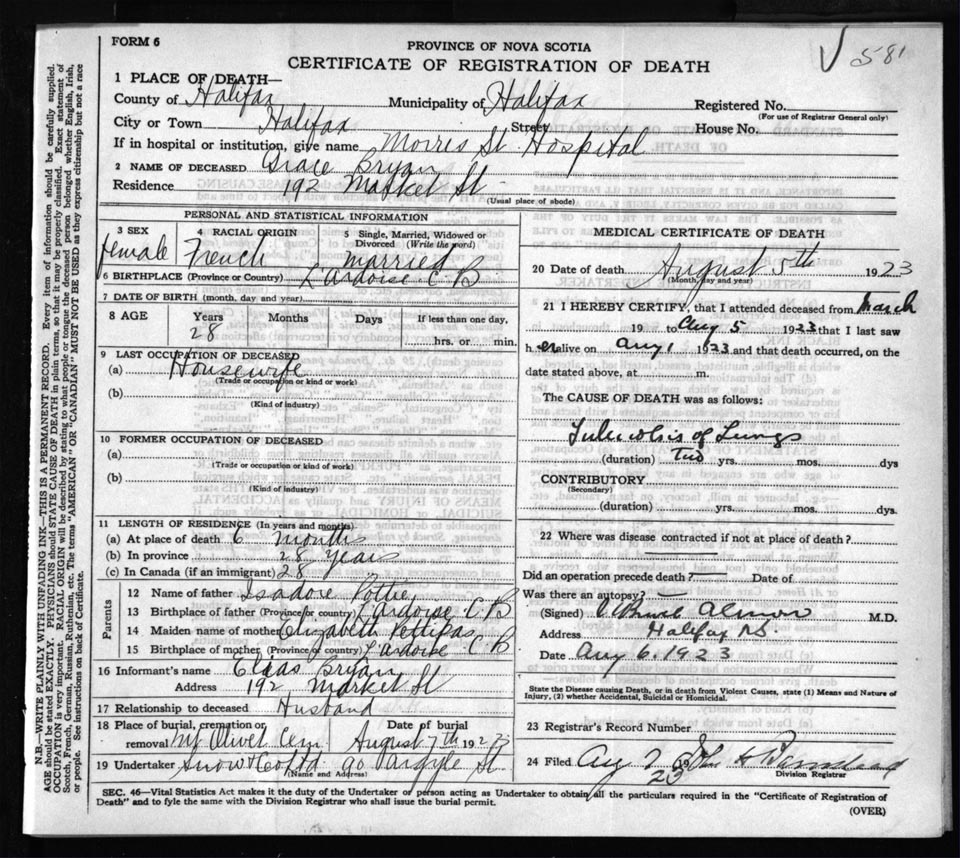 FORM 6
PROVINCE OF NOVA SCOTIA
CERTIFICATE OF REGISTRATION OF DEATH
581
1 PLACE OF DEATH—
County of Halifax Municipality of Halifax Registered No.
(For use of Registrar General only)
City or Town Halifax Street House No.
If in hospital or institution, give name Morris St Hospital
2 NAME OF DECEASED Grace Bryan
Residence 192 Market St
(Usual place of abode)
PERSONAL AND STATISTICAL INFORMATION
3 SEX 4 RACIAL ORIGIN 5 Single, Married, Widowed or Divorced (Write the word)
female French married
6 BIRTHPLACE (Province or Country) L'Ardoise C B
7 DATE OF BIRTH (month, day and year)
8 AGE Years Months Days If less than one day,
28 hrs. or min.
9 LAST OCCUPATION OF DECEASED
(a) Housewife
(Trade or occupation or kind or work)
(b)
(Kind of industry)
10 FORMER OCCUPATION OF DECEASED
(a)
(Trade or occupation or kind of work)
(b)
(Kind of industry)
11 LENGTH OF RESIDENCE (In years and months)
(a) At place of death 6 months
(b) In province 28 years
(c) In Canada (if an immigrant) 28
Parents
12 Name of father Isadore Pottie
13 Birthplace of father (Province or country) L'Ardoise C B
14 Maiden name of mother Elizabeth Pettipas
15 Birthplace of mother (Province or country) L'ardoise C B
16 Informant's name Elias Bryan
Address 192 Market St
17 Relationship to deceased Husband
18 Place of burial, cremation or removal Mt Olivet Cem. Date of burial August 7th 1923
19 Undertaker Snow & Co Ltd 90 Argyle St.
(Name and Address)
MEDICAL CERTIFICATE OF DEATH
20 Date of death August 5th 1923
(Month, day and year)
21 I HEREBY CERTIFY, that I attended deceased from March
19 to Aug 5 1923 that I last saw
h er alive on Aug 1 1923 and that death occurred, on the
date stated above, at m.
The CAUSE OF DEATH was as follows:
Tuberculosis of Lungs
(duration) Two yrs. mos. dys
CONTRIBUTORY
(Secondary)
(duration) yrs. mos. dys.
22 Where was disease contracted if not at place of death?
Did an operation precede death? Date of
Was there an autopsy?
(Signed) Almon M.D.
Address Halifax N.S.
Date Aug 6. 1923
State the Disease causing Death, or in death from Violent Causes, state (1) Means and Nature of Injury, (2) whether Accidental, Suicidal or Homicidal.
23 Registrar's Record Number
24 Filed Aug 7 1923 John H
Division Registrar
SEC. 46—Vital Statistics Act makes it the duty of the Undertaker or person acting as Undertaker to obtain all the particulars required in the "Certificate of Registration of
Death" and to fyle the same with the Division Registrar who shall issue the burial permit.
(OVER)
N.B.—WRITE PLAINLY WITH UNFADING INK—THIS IS A PERMANENT RECORD. Every item of information should be carefully supplied.
AGE should be stated EXACTLY. PHYSICIANS should STATE CAUSE OF DEATH in plain terms, so that it may be properly classified. Exact statement of
OCCUPATION is very important. RACIAL ORIGIN will be described by stating to what people or tongue the deceased person belonged whether English, Irish,
Scotch, French, German, Russian, Ruthenian, etc. The terms "AMERICAN" OR "CANADIAN" MUST NOT BE USED as they express citizenship but not a race
or people. See instructions on back of Certificate.